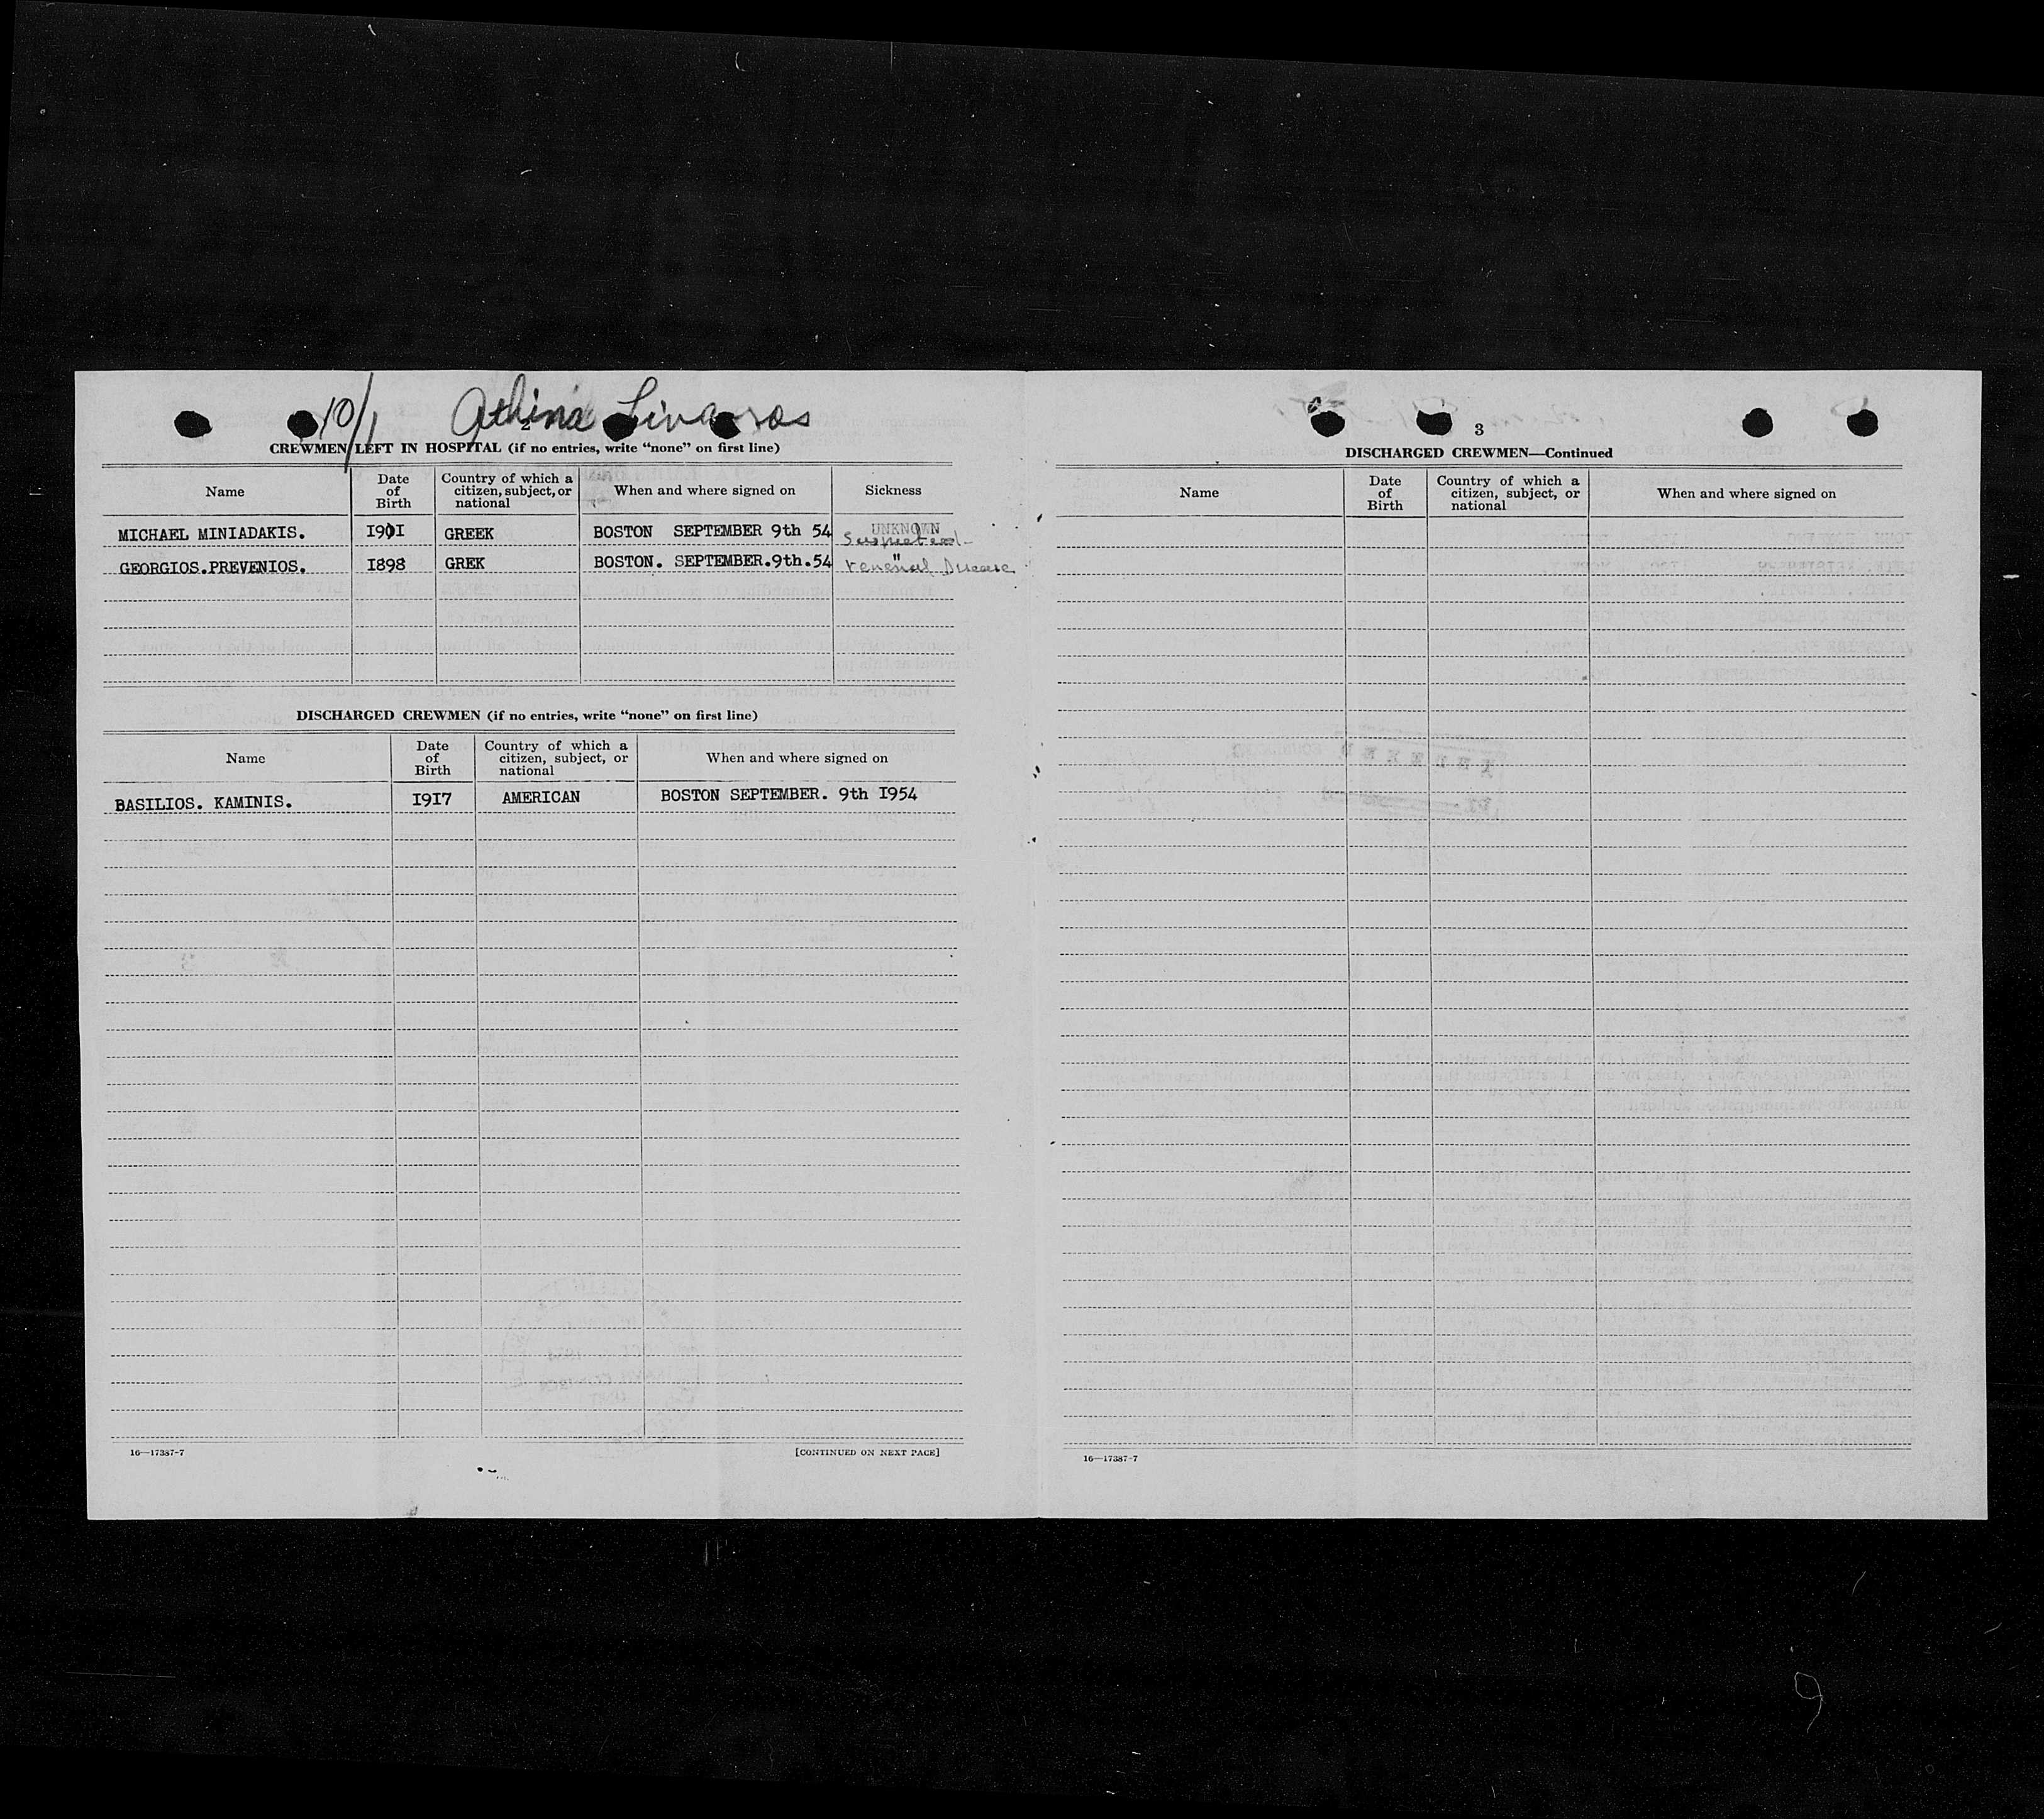 10/1 Athina Livanos
2
CREWMEN LEFT IN HOSPITAL (if no entries, write “none” on first line)
Name
Date of Birth
Country of which a citizen, subject, or national
When and where signed on
Sickness
MICHAEL MINIADAKIS. 1901 GREEK BOSTON SEPTEMBER 9th 54 UNKNOWN
Suspected
GEORGIOS.PREVENIOS. I898 GREK BOSTON. SEPTEMBER.9th.54 "
Venereal Disease
DISCHARGED CREWMEN (if no entries, write “none” on first line)
Name
Date of Birth
Country of which a citizen, subject, or national
When and where signed on
BASILIOS. KAMINIS. I9I7 AMERICAN BOSTON SEPTEMBER. 9th I954
16—17387-7 [CONTINUED ON NEXT PAGE]
3
DISCHARGED CREWMEN—Continued
Name
Date of Birth
Country of which a citizen, subject, or national
When and where signed on
16—17387-7
9